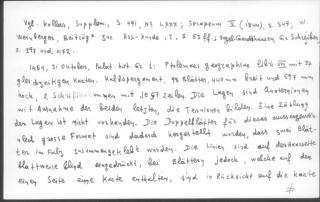 Vgl. Kollar, Supplem., S. 491, N3 LXXX; Serapeum V (1844), S. 347; W.
Weinberger, Beiträge zur Hss.-Kunde I, S.
S. 297 und 452.
1454, 31 Oktober, Palat. hat 6: L: Ptolemaei geographiae libri VIII mit 27
gleichzeitigen Karten. Kalbspergament, 98 Blätter, 440 mm breit und 597 mm
hoch, 2 Schriftkolumnen mit je 57 Zeilen. Die Lagen sind Quaternionen
mit Ausnahme der beiden letzten, die Ternionen bilden. Eine Zählung
der Lagen ist nicht vorhanden. Die Doppelblätter für dieses aussergewöhn-
lich grosse Format sind dadurch hergestellt worden, dass zwei Blät-
ter im Falz zusammengeklebt wurden. Die Linien sind auf der Haarseite
blattweise blind eingedrückt, bei Blättern jedoch, welche auf der
einen Seite eine Karte enthalten, sind in Rücksicht auf die Karte